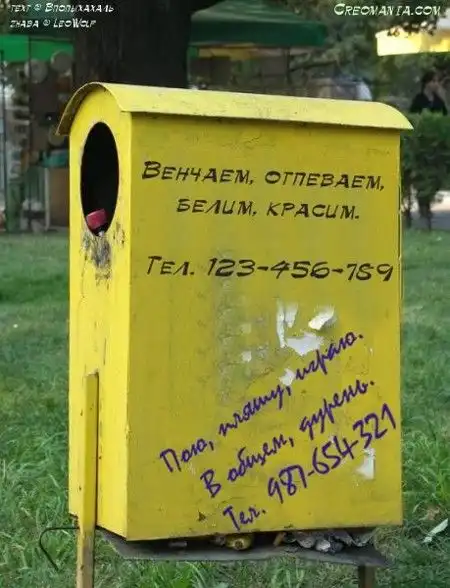 текст © Впопыхахаль
zнава © LeoWolf
Creomania.com
Венчаем, отпеваем,
белим, красим.
Тел. 123-456-789
Пою, пляшу, играю.
В общем, дурень.
Тел. 987-654-321